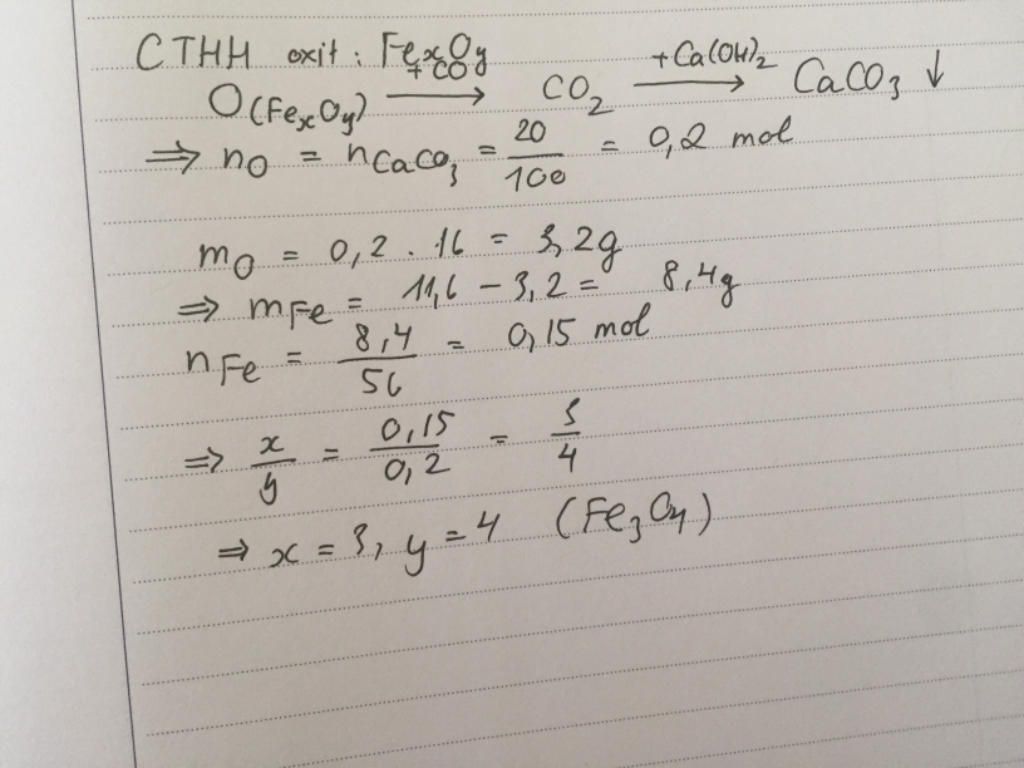 CTHH oxit : FexOy
O(FexOy) + CO → CO2 + Ca(OH)2 → CaCO3 ↓
⇒ nO = nCaCO3 = 20/100 = 0,2 mol
mO = 0,2 . 16 = 3,2g
⇒ mFe = 11,6 - 3,2 = 8,4g
nFe = 8,4/56 = 0,15 mol
⇒ x/y = 0,15/0,2 = 3/4
⇒ x = 3, y = 4 (Fe3O4)